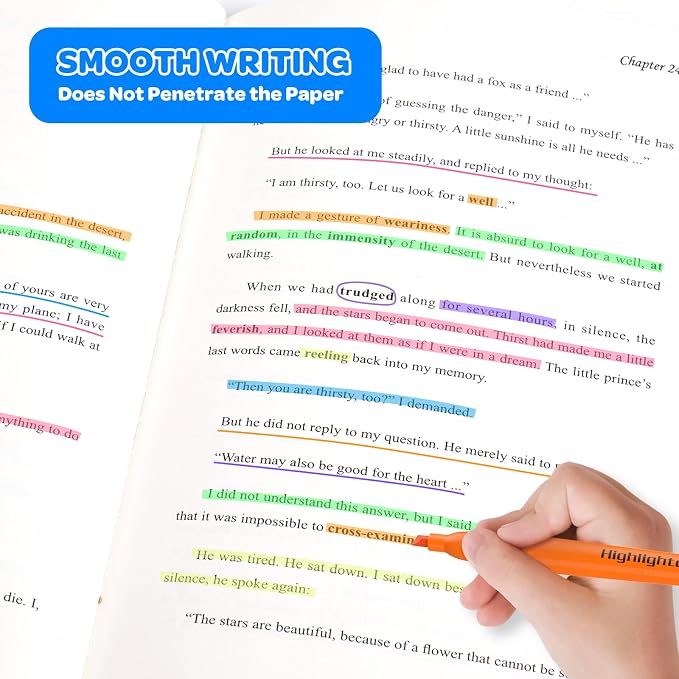 SMOOTH WRITING
Does Not Penetrate the Paper
Chapter 24
glad to have had a fox as a friend ..."
of guessing the danger," I said to myself. "He has
or thirsty. A little sunshine is all he needs ..."
But he looked at me steadily, and replied to my thought:
"I am thirsty, too. Let us look for a well ..."
I made a gesture of weariness. It is absurd to look for a well, at
random, in the immensity of the desert. But nevertheless we started
walking.
When we had trudged along for several hours, in silence, the
darkness fell, and the stars began to come out. Thirst had made me a little
feverish, and I looked at them as if I were in a dream. The little prince's
last words came reeling back into my memory.
"Then you are thirsty, too?" I demanded.
But he did not reply to my question. He merely said to
"Water may also be good for the heart ..."
I did not understand this answer, but I said
that it was impossible to cross-examin
He was tired. He sat down. I sat down
silence, he spoke again:
"The stars are beautiful, because of a flower that cannot be
accident in the desert,
was drinking the last
of yours are very
my plane; I have
if I could walk at
anything to do
die. I,
Highlighte